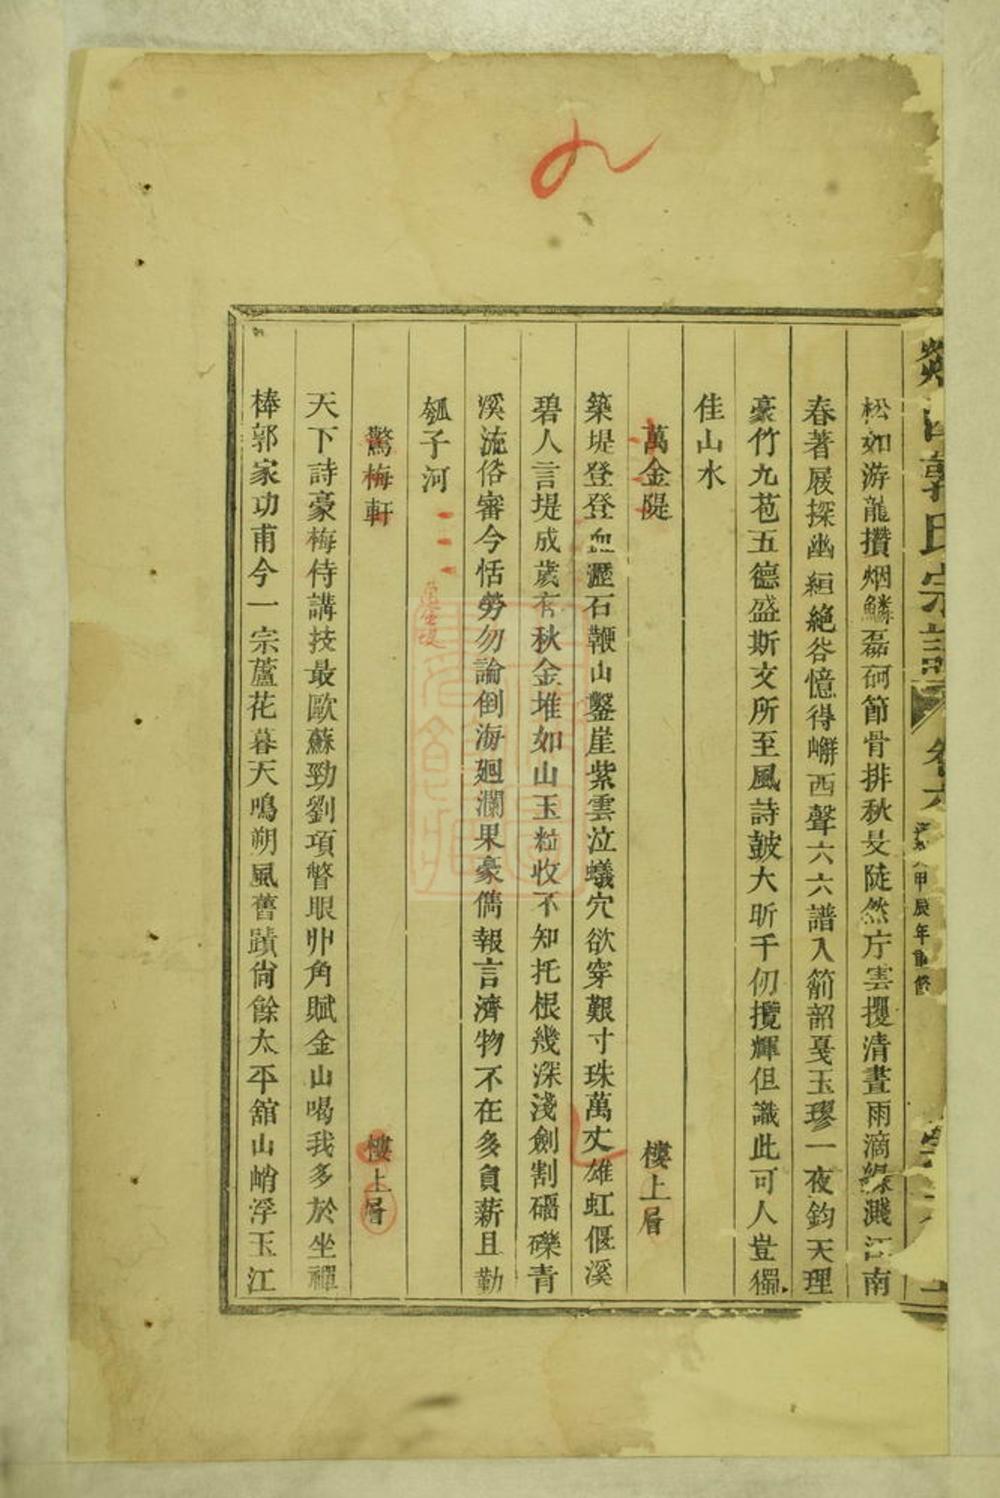 郭氏宗譜 卷六 甲辰年重修
松如游龍攢烟鱗磊砢節骨排秋旻陡然庁雲攫清晝雨滴綠濺江南
春著屐探幽絙絶谷憶得嶰西聲六六譜入箾韶戛玉璆一夜鈞天理
豪竹九苞五德盛斯文所至風詩鼓大昕千仞攬輝但識此可人豈獨
佳山水
萬金隄 樓上層
築堤登登血瀝石鞭山鑿崖紫雲泣蟻穴欲穿艱寸珠萬丈雄虹偃溪
碧人言堤成歲有秋金堆如山玉粒收不知托根幾深淺劍割碯礫青
溪流俗審今恬勞勿論倒海廻瀾果豪儁報言濟物不在多負薪且勤
瓠子河
驚梅軒 樓上層
天下詩豪梅侍講技最歐蘇勁劉項瞥眼丱角賦金山喝我多於坐禪
棒郭家功甫今一宗蘆花暮天鳴朔風舊蹟尙餘太平舘山峭浮玉江